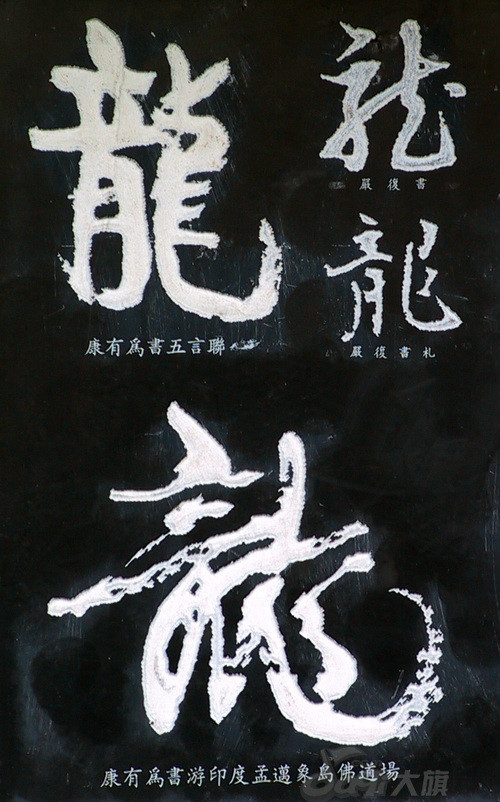 龍
康有爲書五言聯
龍
嚴復書
龍
嚴復書札
龍
康有爲書游印度孟邁象島佛道場
大旗